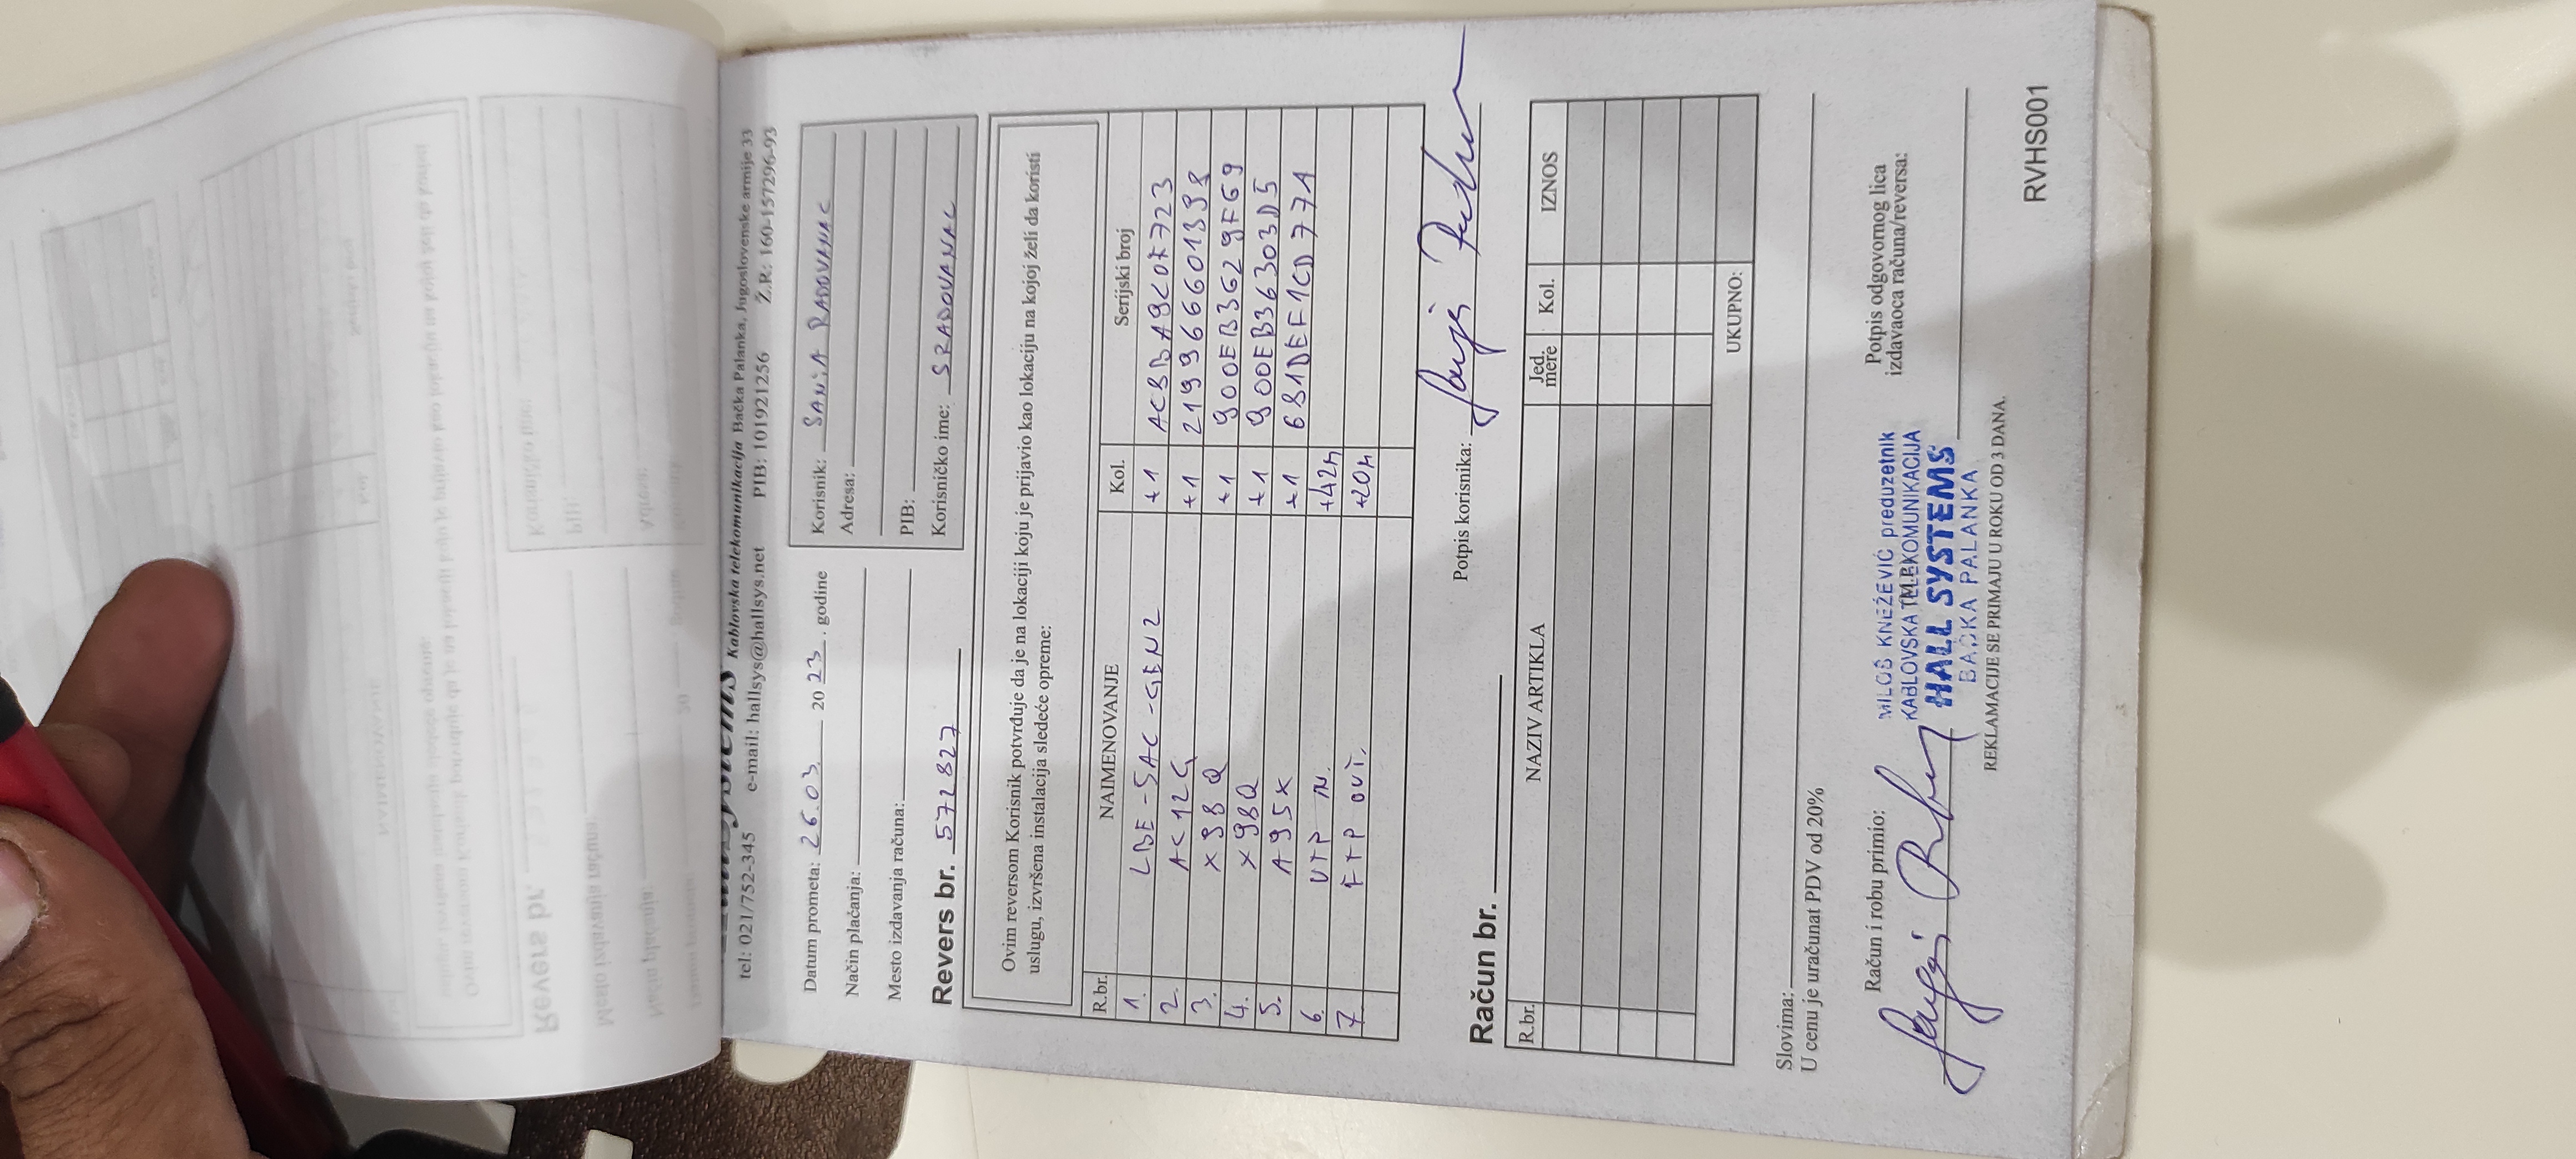 Kablovska telekomunikacija Bačka Palanka, Jugoslovenske armije 33
tel: 021/752-345 e-mail: hallsys@hallsys.net PIB: 101921256 Ž.R.: 160-157296-93
Datum prometa: 26.03. 2023. godine
Način plaćanja:
Mesto izdavanja računa:
Revers br. 572827
Korisnik: SANJA RADOVANAC
Adresa:
PIB:
Korisničko ime: SRADOVANAC
Ovim reversom Korisnik potvrđuje da je na lokaciji koju je prijavio kao lokaciju na kojoj želi da koristi
uslugu, izvršena instalacija sledeće opreme:
R.br. NAIMENOVANJE Kol. Serijski broj
1. LBE-5AC-GEN2 +1
2. AC12G +1
3. X98Q +1 900EB3629F69
4. X98Q +1 900EB36303D5
5. A95X +1 681DEF1CD774
6. UTP IN. +42m
7. FTP +20m
Potpis korisnika:
Račun br.
R.br. NAZIV ARTIKLA Jed. mere Kol. IZNOS
UKUPNO:
Slovima:
U cenu je uračunat PDV od 20%
Račun i robu primio:
MILOŠ KNEŽEVIĆ preduzetnik
KABLOVSKA TELEKOMUNIKACIJA
HALL SYSTEMS
BAČKA PALANKA
Potpis odgovornog lica
izdavaoca računa/reversa:
REKLAMACIJE SE PRIMAJU U ROKU OD 3 DANA.
RVHS001